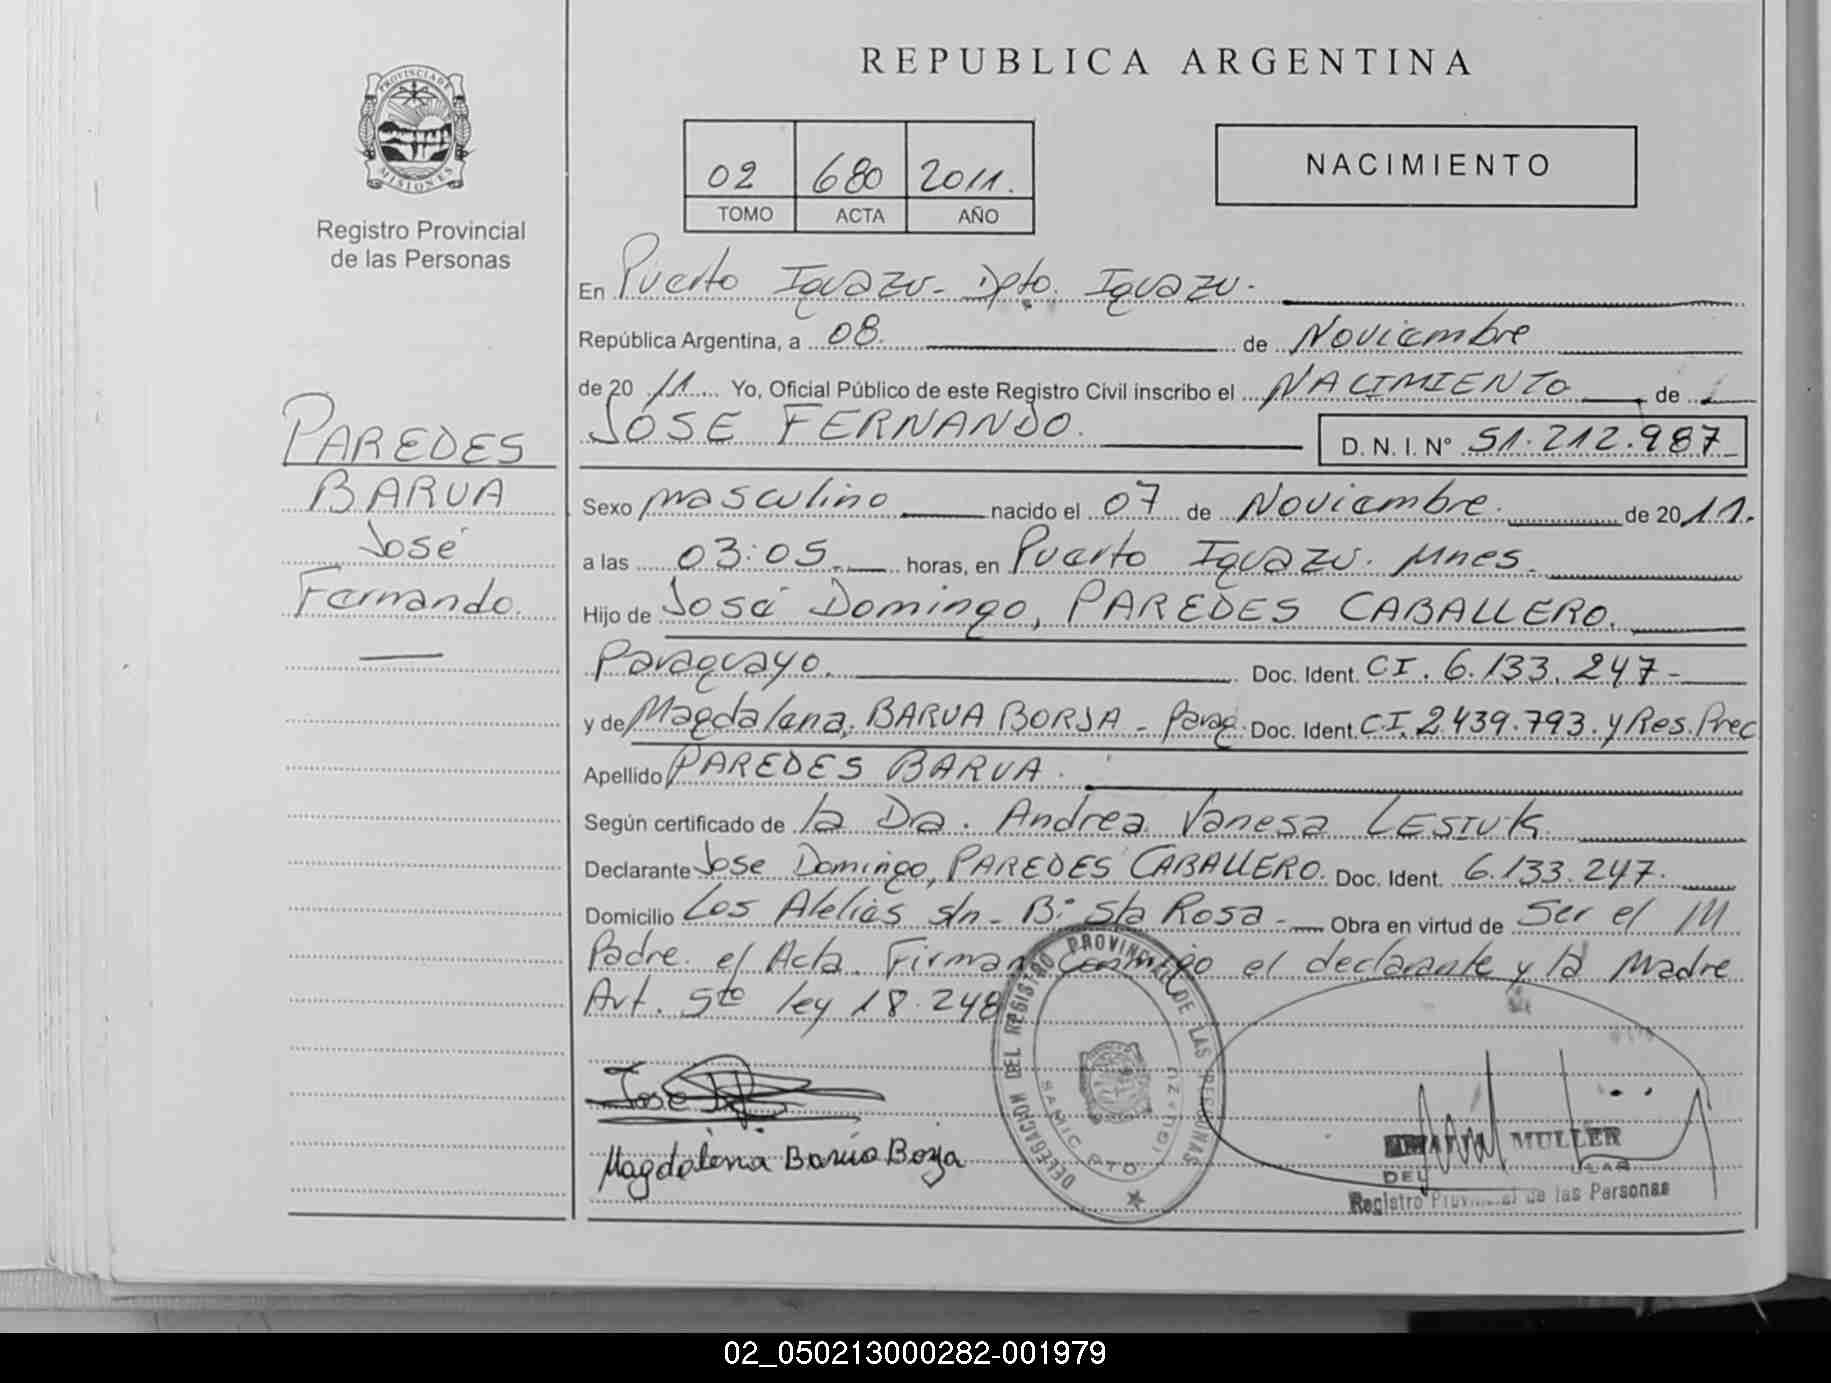 REPUBLICA ARGENTINA
PROVINCIA DE MISIONES
Registro Provincial
de las Personas
02 680 2011.
TOMO ACTA AÑO
NACIMIENTO
En Puerto Iguazu - Dpto. Iguazu -
República Argentina, a 08. de Noviembre
de 20 11 Yo, Oficial Público de este Registro Civil inscribo el NACIMIENTO de
JOSE FERNANDO. D. N. I. N° 51.212.987
PAREDES
BARUA
José
Fernando.
Sexo masculino nacido el 07 de Noviembre. de 20 11.
a las 03:05 horas, en Puerto Iguazu. Mnes.
Hijo de José Domingo, PAREDES CABALLERO.
Paraguayo. Doc. Ident. CI. 6.133.247-
y de Magdalena, BARUA BORJA - Parag. Doc. Ident. C.I. 2.439.793. y Res. Prec
Apellido PAREDES BARUA.
Según certificado de la Dra. Andrea Vanesa LESIUK.
Declarante Jose Domingo, PAREDES CABALLERO. Doc. Ident. 6.133.247.
Domicilio Los Alelies s/n - B: Sta Rosa - Obra en virtud de Ser el
Padre. el Acta. Firman Conmigo el declarante y la Madre
Art. 5to ley 18.248
Jose
Magdalena Barúa Borja
DELEGACION DEL REGISTRO PROVINCIAL DE LAS PERSONAS
IGUAZU
MULLER
DEL
Registro Provincial de las Personas
02_050213000282-001979